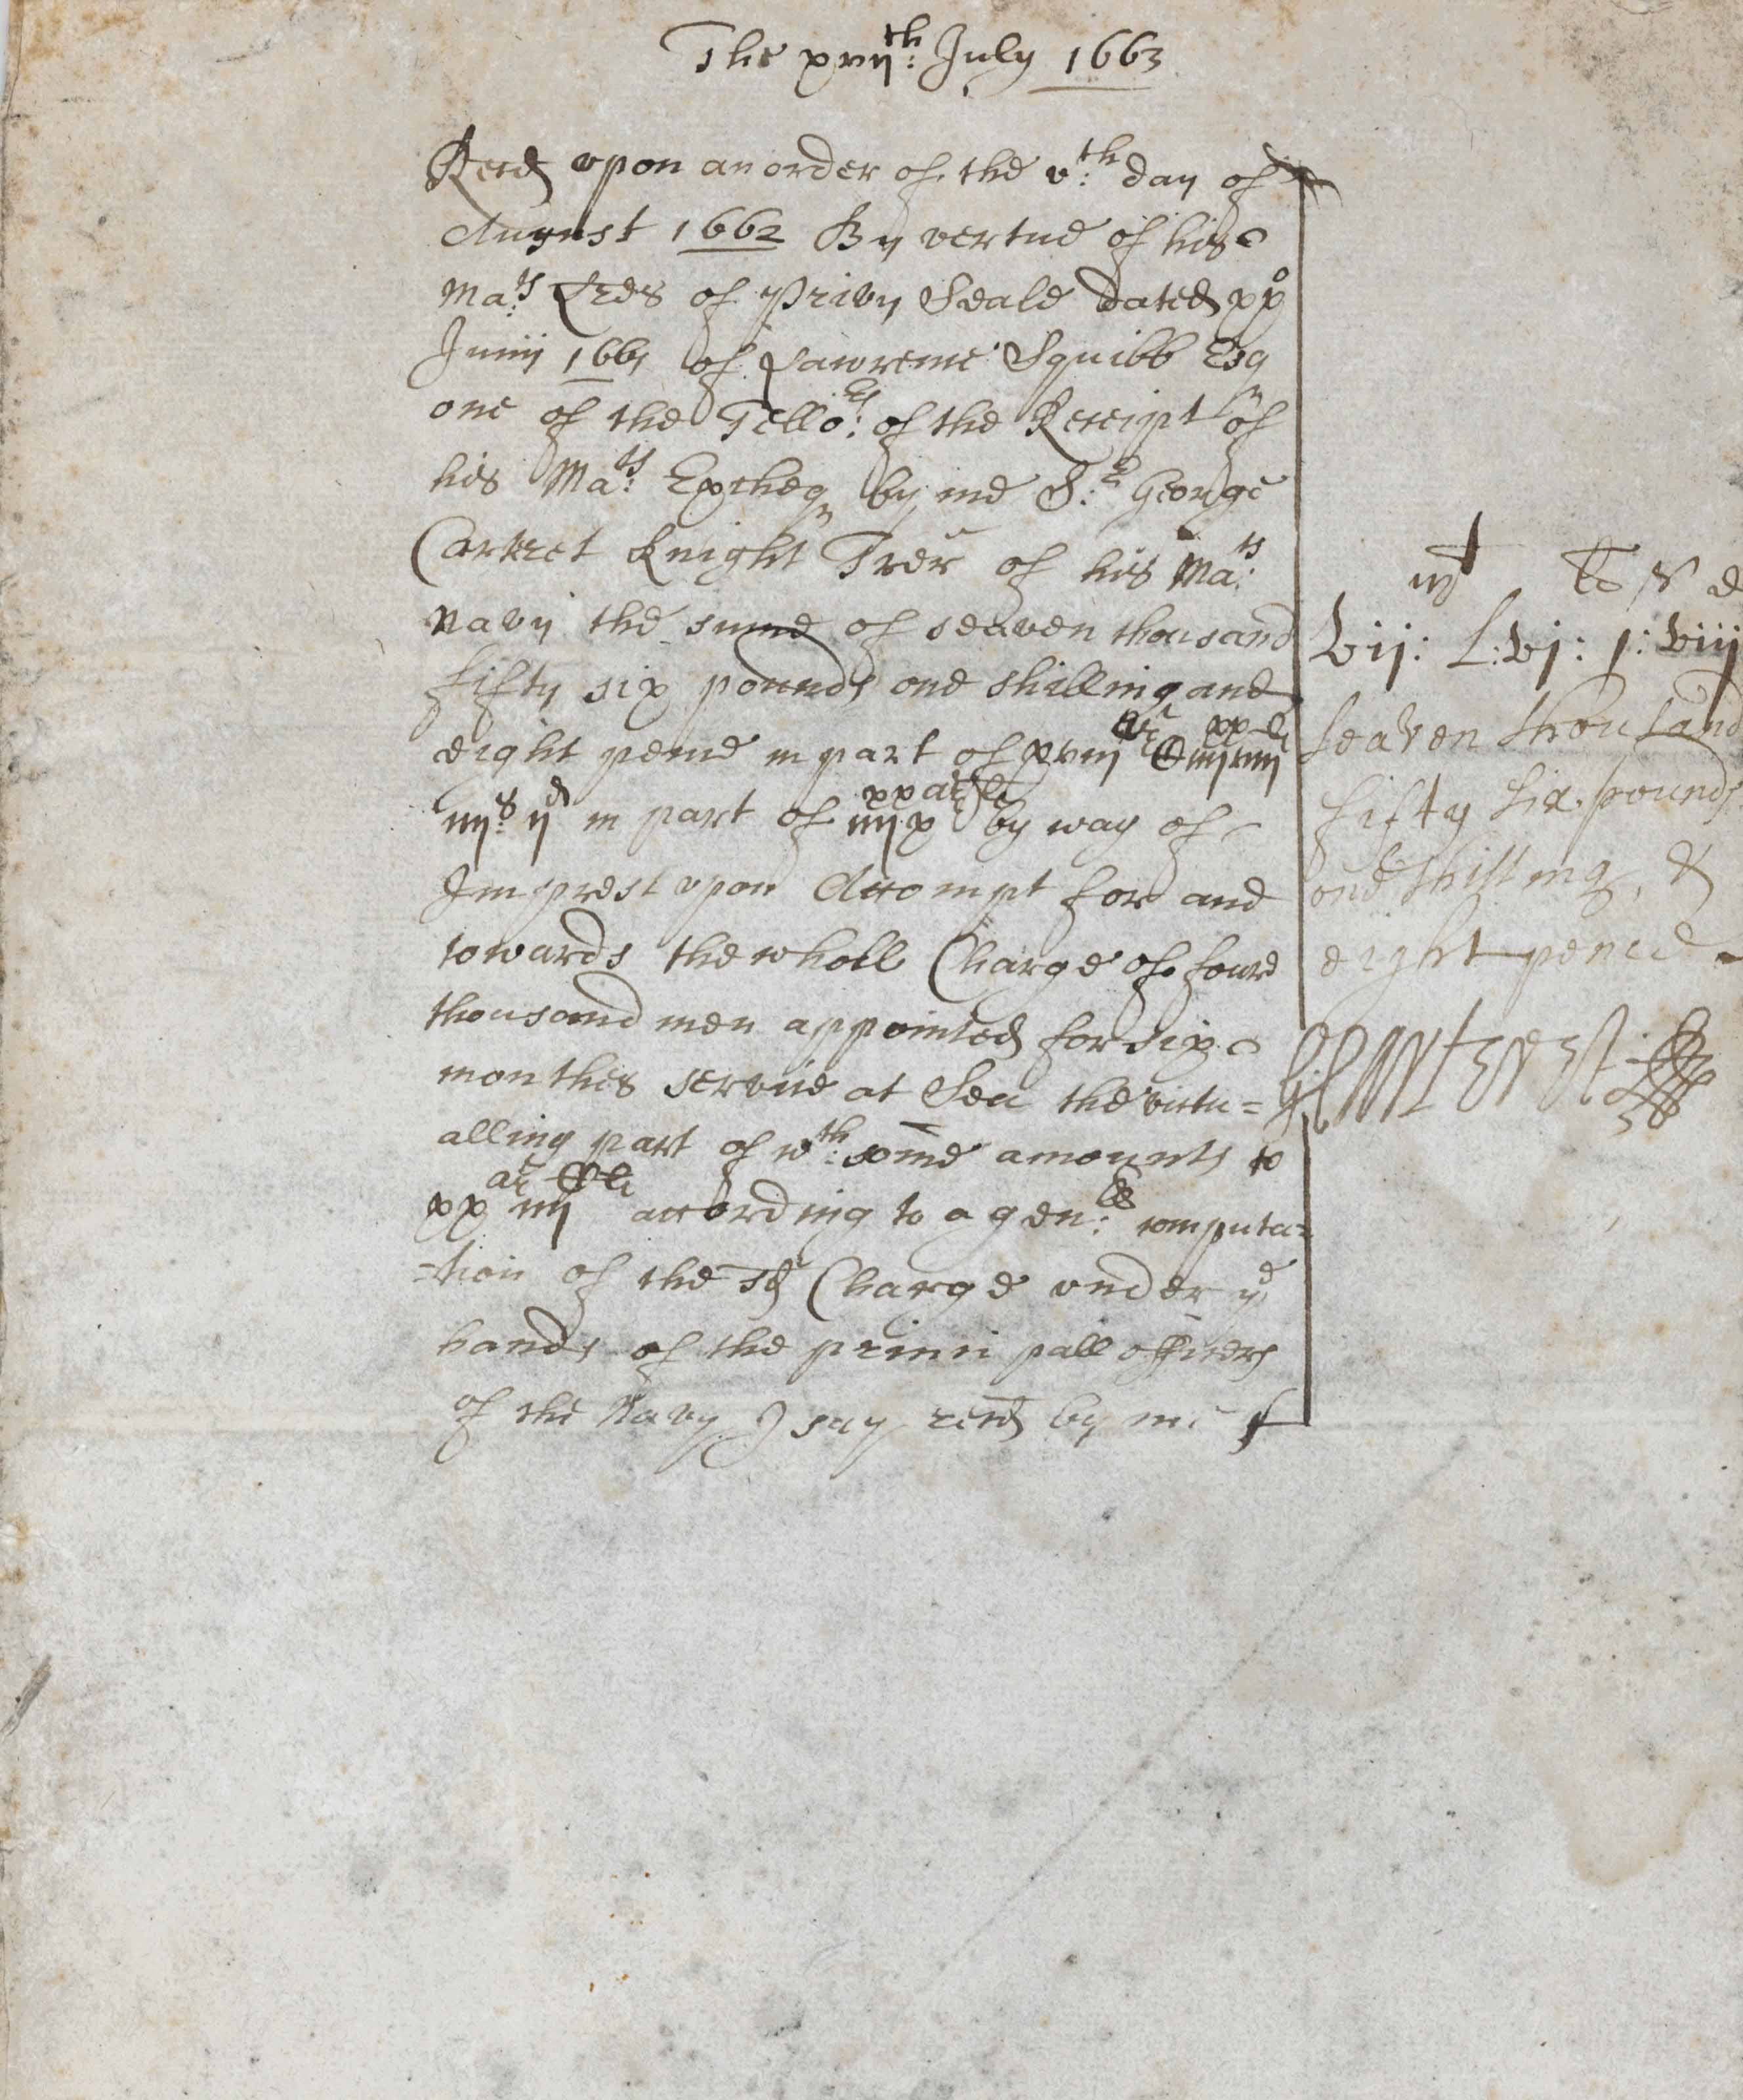 The xvijth: July 1663
Recd vpon an order of the vth: day of
August 1662 By vertue of his
Mats: Lres of Privy Seale dated xxo
Junij 1661 of Lawrence Squibb Esq
one of the Tellors: of the Receipt of
his Mats: Excheqr by me Sr: George
Carteret Knight Trer of his Mats:
Navy the sume of seaven thousand
fifty six pounds one shilling and
eight pence in part of xviij
iiijs: ijd in part of by way of
Imprest vpon Accompt for and
towards the wholl Charge of foure
thousand men appointed for six
monthes service at Sea the victu=
alling part of wth: some amounts to
xx iiij according to a genll: computa=
=tion of the sd Charge vnder ye
hands of the principall officers
of the Navy I say recd by me
m li s d
vij: L:vj: j: viij
seaven thousand
fifty six pounds
one shilling, &
eight pence
G: Carteret